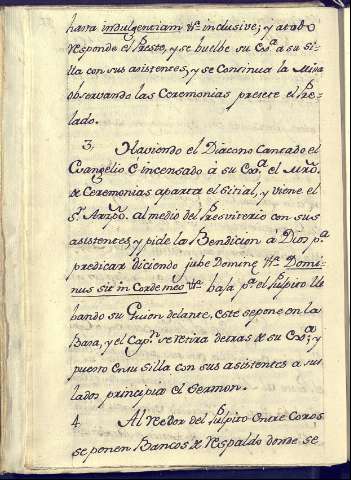 hasta indulgentiam &c.ª inclusive; y a todo
responde el Preste, y se buelbe su Ex.ª a su si-
lla con sus asistentes, y se Continua la Misa
observando las Ceremonias presete el Pre-
lado.
3. Haviendo el Diacono Cantado el
Evangelio é incensado à su Ex.ª el Mrõ.
de Ceremonias aparta el Sitial, y viene el
S.r Arzpõ. al medio del Presviterio con sus
asistentes, y pide la Bendicion â Dios p.ª
predicar diciendo jube Domine &c.ª Domi-
nus sit in Corde meo &c.ª baja p.r el Pulpito lle
bando su Guion delante, este se pone en la
Basa, y el Cap.n se retira detras de su Ex.ª; y
puesto en su silla con sus asistentes a sus
lados principia el Sermon.
4. Al rededor del Pulpito entre Coros
se ponen Bancos de respaldo donde se